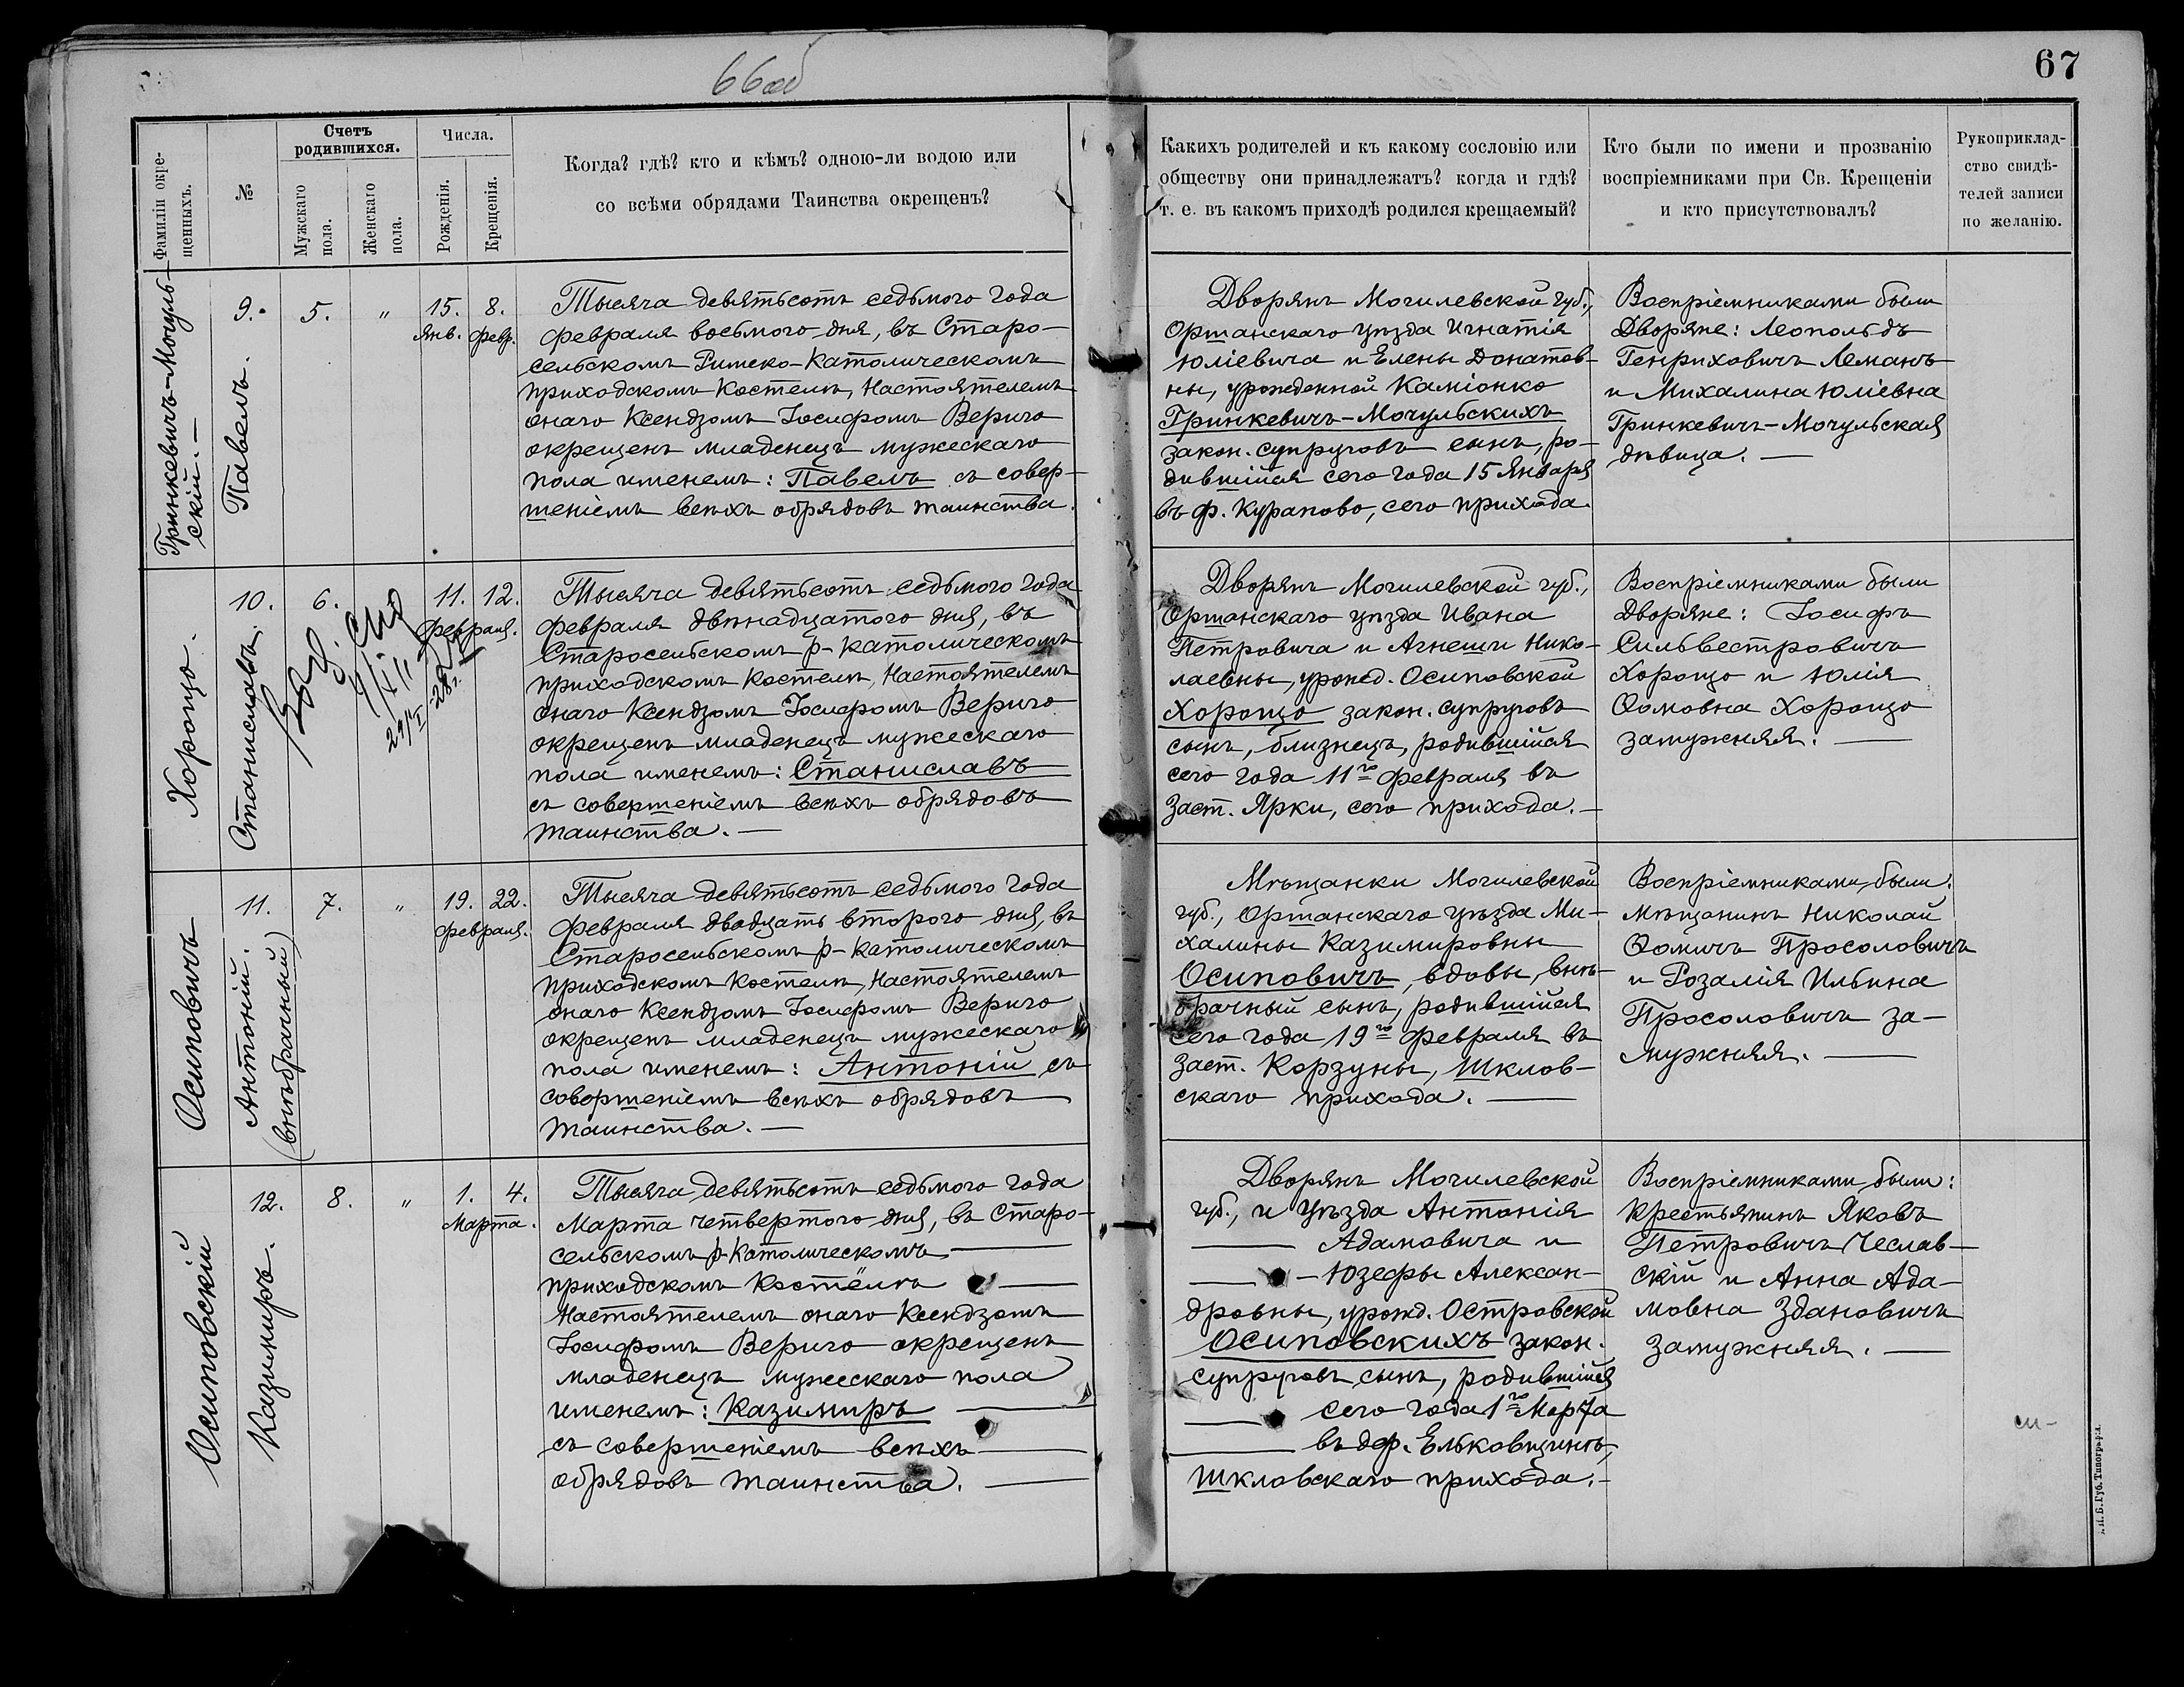 66об
67
Фамиліи окре-
щенныхъ.
№
Счетъ
родившихся.
Мужскаго
пола.
Женскаго
пола.
Числа.
Рожденія.
Крещенія.
Когда? гдѣ? кто и кѣмъ? одною-ли водою или
со всѣми обрядами Таинства окрещенъ?
Какихъ родителей и къ какому сословію или
обществу они принадлежатъ? когда и гдѣ?
т. е. въ какомъ приходѣ родился крещаемый?
Кто были по имени и прозванію
воспріемниками при Св. Крещеніи
и кто присутствовалъ?
Рукоприклад-
ство свидѣ-
телей записи
по желанію.
Гринкевичъ-Мочуль-
скій.—
9.
Павелъ.
5.
"
15.
Янв.
8.
Февр.
Тысяча девятьсотъ седьмого года
февраля восьмого дня, въ Старо-
сельскомъ Римско-Католическомъ
приходскомъ Костелѣ, Настоятелемъ
онаго Ксендзомъ Іосифомъ Вериго
окрещенъ младенецъ мужескаго
пола именемъ: Павелъ съ совер-
шеніемъ всѣхъ обрядовъ таинства.
Дворянъ Могилевской губ.,
Оршанскаго уѣзда Игнатія
Юліевича и Елены Донатов-
ны, урожденной Каміонко
Гринкевичъ-Мочульскихъ
закон. супруговъ сынъ, ро-
дившійся сего года 15 Января
въ ф. Курапово, сего прихода.
Воспріемниками были
Дворяне: Леопольдъ
Генриховичъ Леманъ
и Михалина Юліевна
Гринкевичъ-Мочульская
дѣвица. —
Хорощо.
10.
Станиславъ.
6.
11.
12.
Февраля.
Тысяча девятьсотъ седьмого года
февраля двѣнадцатого дня, въ
Старосельскомъ р-католическомъ
приходскомъ Костелѣ, Настоятелемъ
онаго Ксендзомъ Іосифомъ Вериго
окрещенъ младенецъ мужескаго
пола именемъ: Станиславъ
съ совершеніемъ всѣхъ обрядовъ
таинства. —
Дворянъ Могилевской губ.,
Оршанскаго уѣзда Ивана
Петровича и Агнешки Нико-
лаевны, урожд. Осиповской
Хорощо закон. супруговъ
сынъ, близнецъ, родившійся
сего года 11го февраля въ
заст. Ярки, сего прихода.—
Воспріемниками были
Дворяне: Іосифъ
Сильвестровичъ
Хорощо и Юлія
Ѳомовна Хорощо
замужняя. —
Осиповичъ
11.
Антоній.
(внѣбрачный)
7.
"
19.
22.
Февраля.
Тысяча девятьсотъ седьмого года
февраля двадцать второго дня, въ
Старосельскомъ р-католическомъ
приходскомъ Костелѣ, Настоятелемъ
онаго Ксендзомъ Іосифомъ Вериго
окрещенъ младенецъ мужескаго
пола именемъ: Антоній съ
совершеніемъ всѣхъ обрядовъ
таинства. —
Мѣщанки Могилевской
губ., Оршанскаго уѣзда Ми-
халины Казимировны
Осиповичъ, вдовы, внѣ-
брачный сынъ, родившійся
сего года 19го февраля въ
заст. Корзуны, Шклов-
скаго прихода. —
Воспріемниками были:
мѣщанинъ Николай
Ѳомичъ Просоловичъ
и Розалія Ильина
Просоловичъ за-
мужняя. —
Осиповскій
12.
Казимиръ.
8.
"
1.
4.
Марта.
Тысяча девятьсотъ седьмого года
Марта четвертого дня, въ Старо-
сельскомъ р-Католическомъ —
приходскомъ Костёлѣ —
Настоятелемъ онаго Ксендзомъ
Іосифомъ Вериго окрещенъ
младенецъ мужескаго пола
именемъ: Казимиръ —
съ совершеніемъ всѣхъ —
обрядовъ таинства. —
Дворянъ Могилевской
губ., и уѣзда Антонія
— Адамовича и
— Юзефы Алексан-
дровны, урожд. Островской
Осиповскихъ закон.
супруговъ сынъ, родившійся
— сего года 1го Марта
— въ деф. Ельковщинѣ,
Шкловскаго прихода.—
Воспріемниками были:
Крестьянинъ Яковъ
Петровичъ Чеслав-
скій и Анна Ада-
мовна Здановичъ
замужняя. —
Губ. Типографія.